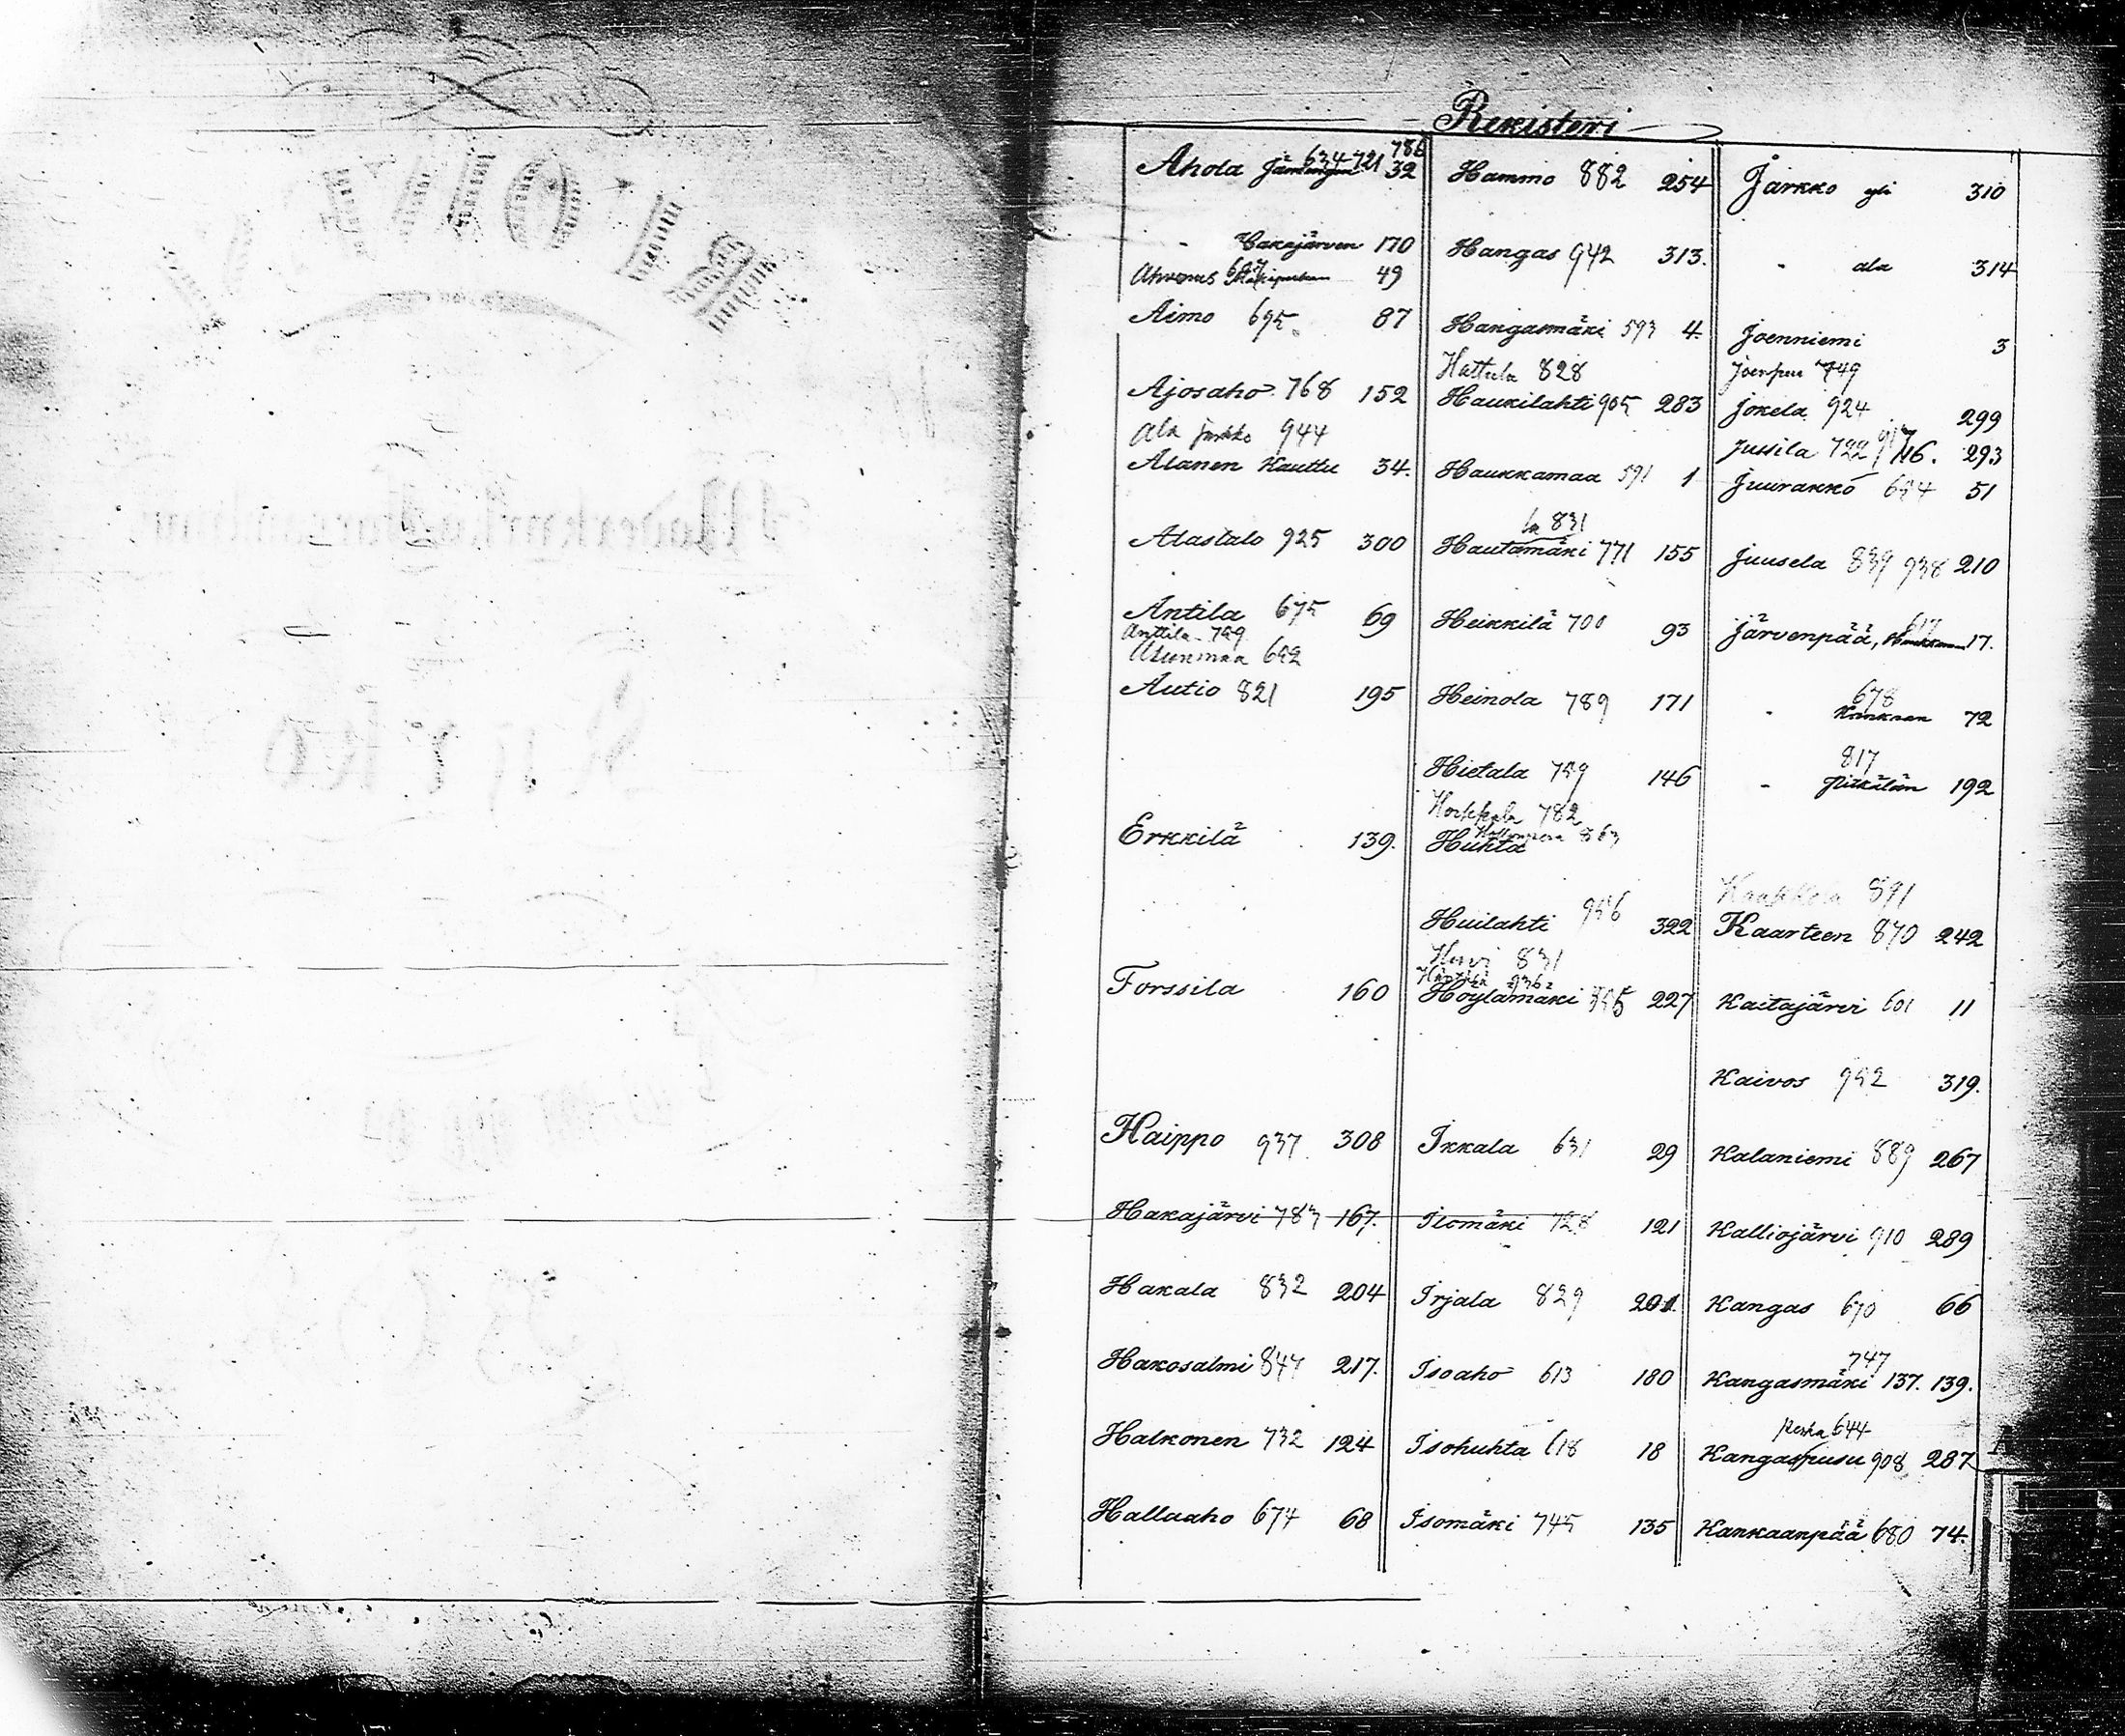 Rekisteri
Ahola 634 721 786 32
" Hakajärven 170
Ahvenus 49
Aimo 695 87
Ajosaho 768 152
Ala Järkko 944
Alanen Kauttu 34.
Alastalo 925 300
Antila 675 69
Anttila 759
Asunmaa 692
Autio 821 195
Erkkilä 139.
Forssila 160
Haippo 937 308
Hakajärvi 783 167.
Hakala 832 204
Hakosalmi 847 217.
Halkonen 732 124
Hallaaho 674 68
Hammo 882 254
Hangas 942 313.
Hangasmäki 593 4.
Hattula 828
Haukilahti 905 283
Haukkamaa 591 1
la 831
Hautamäki 771 155
Heikkilä 700 93
Heinola 789 171
Hietala 759 146
Horkkala 782
863
Huhta
Huilahti 956 322
831
936
Höylämäki 227
Ikkala 631 29
Ilomäki 728 121
Irjala 829 201.
Isoaho 613 180
Isohuhta 618 18
Isomäki 745 135
Järkko yli 310
" ala 314
Joenniemi 3
Joenpuu 749
Jokela 924 299
Jussila 722 917 116. 293
Juurakko 654 51
Juusela 839 938 210
617
Järvenpää, 17.
678
" Kankaan 72
817
" Pitkälän 192
891
Kaarteen 870 242
Kaitajärvi 601 11
Kaivos 952 319.
Kalaniemi 889 267
Kalliojärvi 910 289
Kangas 670 66
747
Kangasmäki 137. 139.
644
Kangaspusu 908 287
Kankaanpää 680 74.